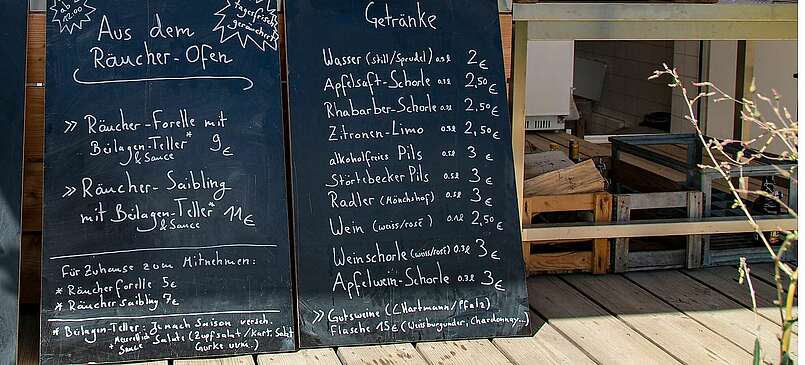 ab
12.00
tagesfrisch
geräuchert
Aus dem
Räucher-Ofen
» Räucher-Forelle mit
Beilagen-Teller* 9€
& Sauce
» Räucher-Saibling
mit Beilagen-Teller* 11€
& Sauce
Für Zuhause zum Mitnehmen:
* Räucherforelle 5€
* Räuchersaibling 7€
* Beilagen-Teller: Je nach Saison versch.
Salate (Zupfsalat/Kart. Salat
+ Sauce Gurke uvm.)
Getränke
Wasser (still/Sprudel) 0.5l 2€
Apfelsaft-Schorle 0.5l 2,50€
Rhabarber-Schorle 0.5l 2,50€
Zitronen-Limo 0.5l 2,50€
alkoholfreies Pils 0.5l 3€
Störtebecker Pils 0.5l 3€
Radler (Mönchshof) 0.5l 3€
Wein (weiss/rosé) 0.1l 2,50€
Weinschorle (weiss/rosé) 0.3l 3€
Apfelwein-Schorle 0.3l 3€
» Gutsweine (L. Hartmann/Pfalz)
Flasche 15€ (Weissburgunder, Chardonnay...)